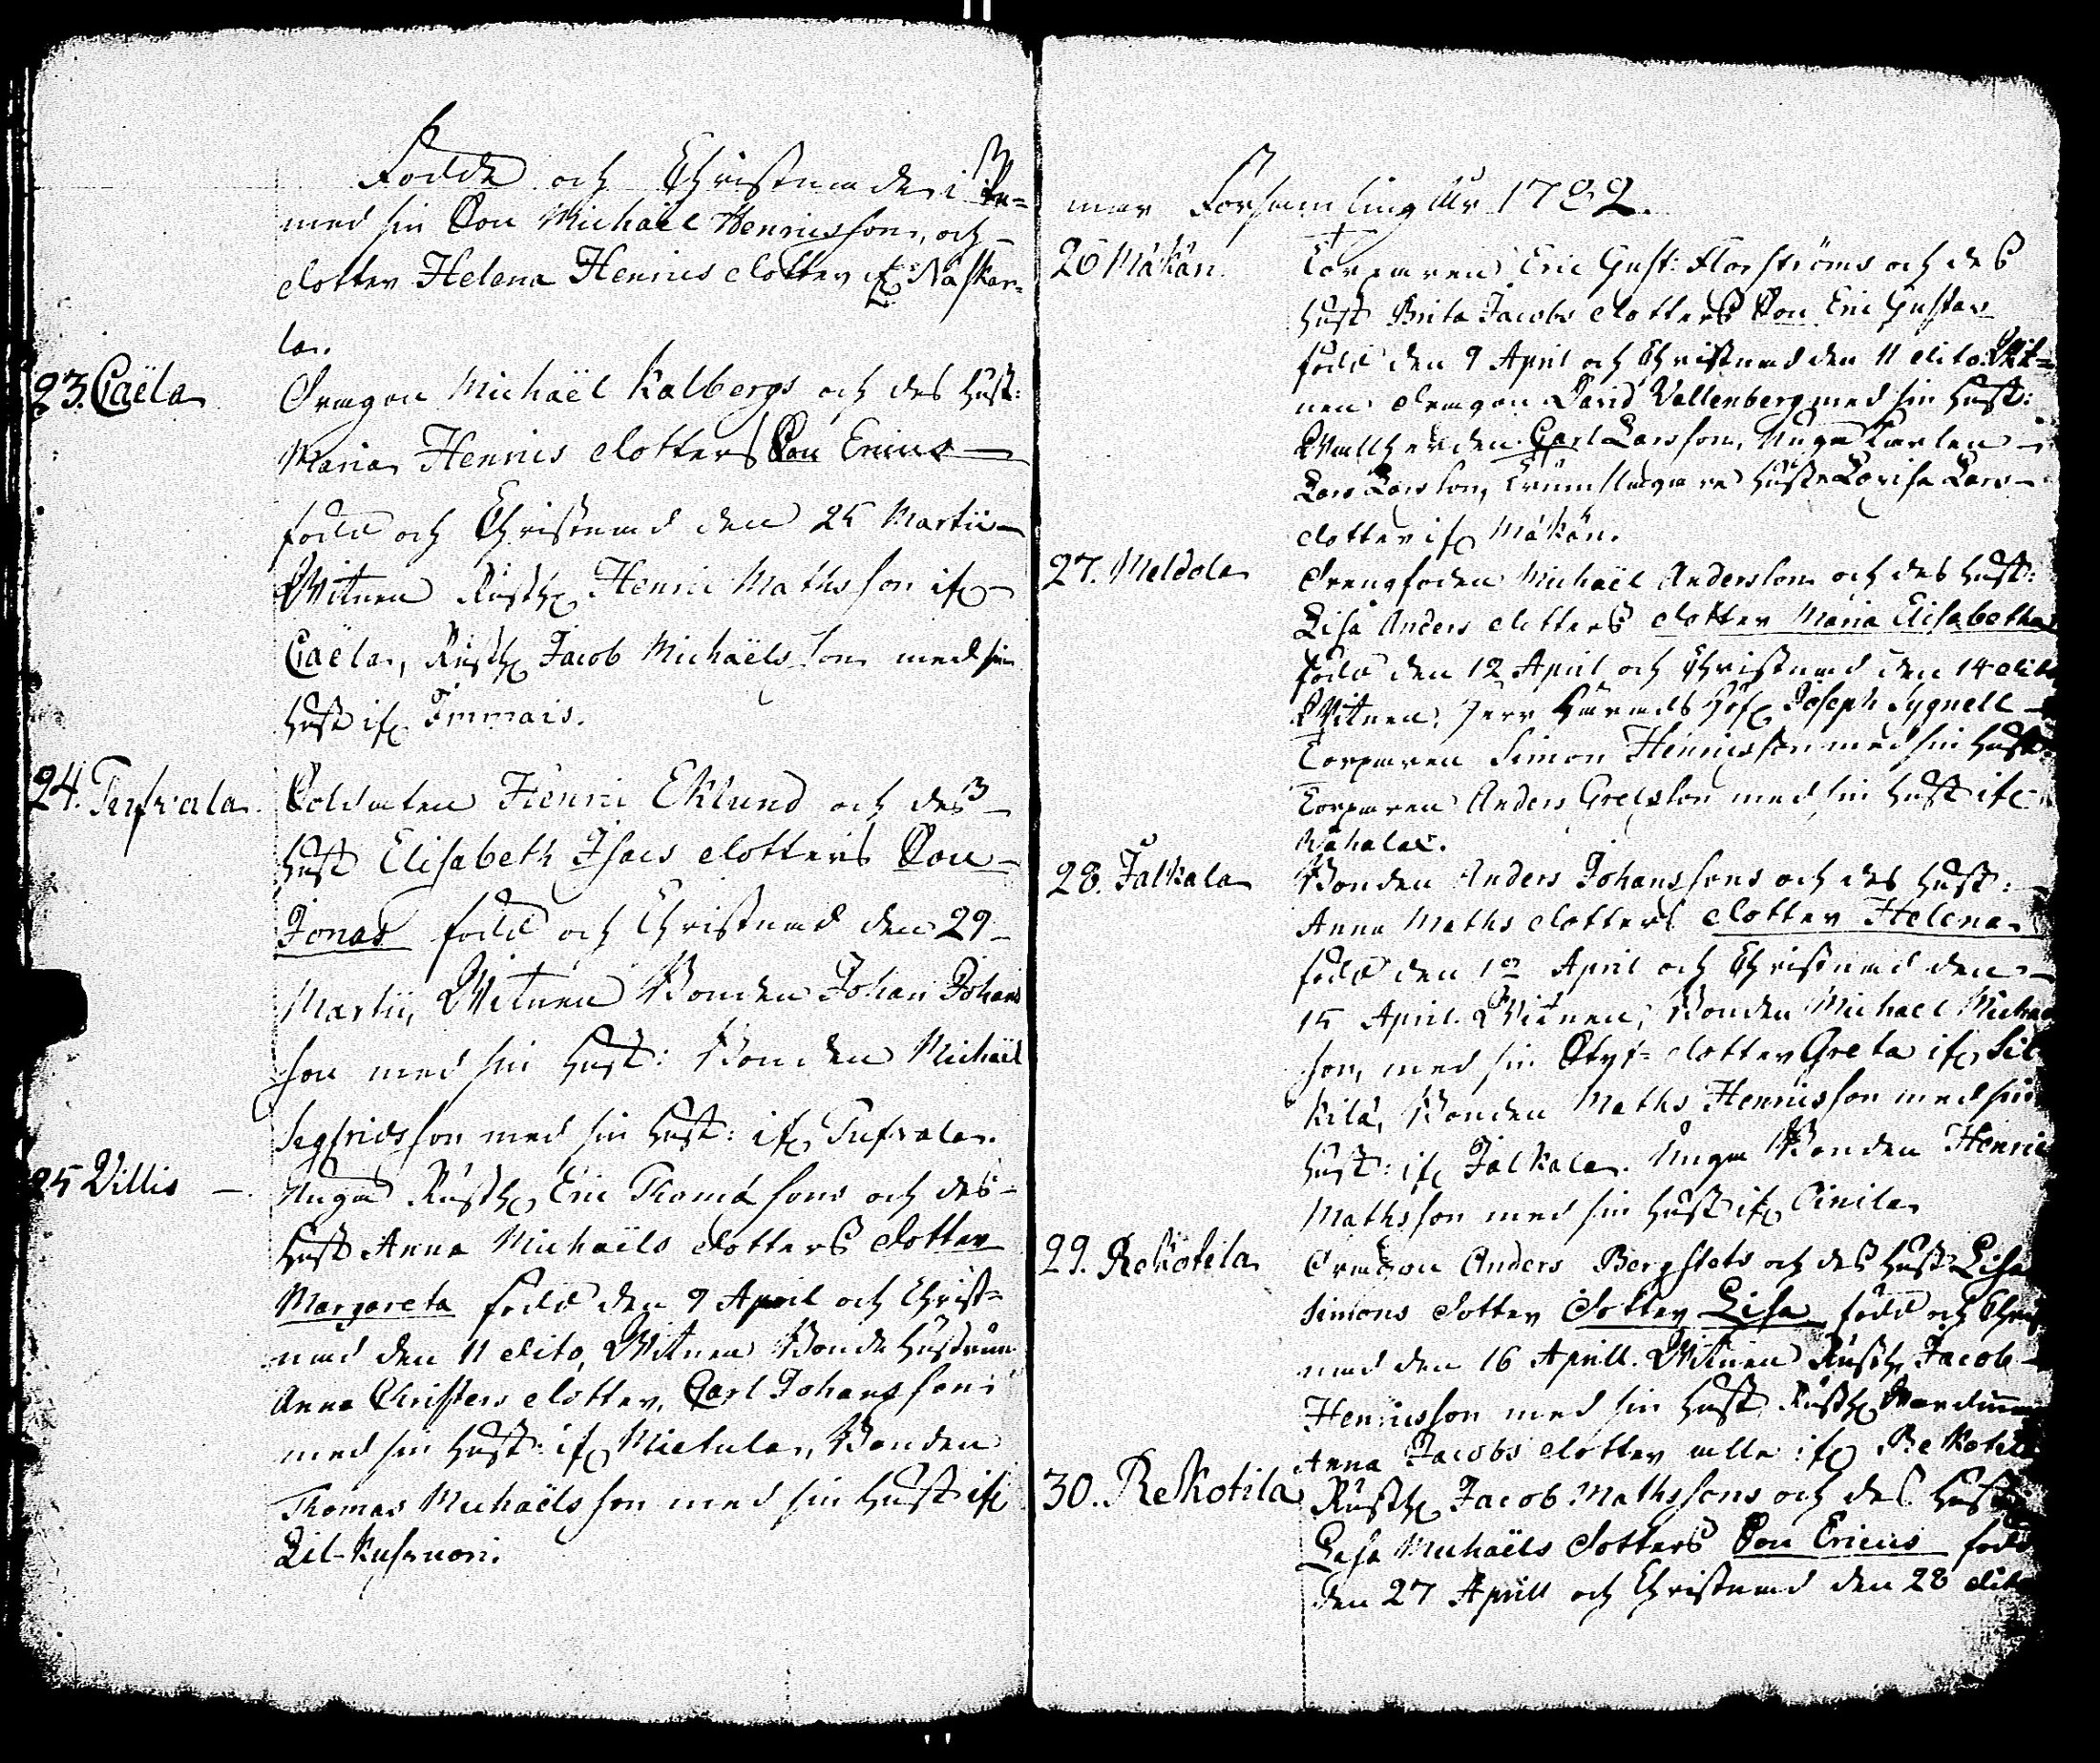 Födde och Christnade i Pe=
med sin Son Michaël Henricsson, och
dotter Helena Henrics dotter ifr. Naskar=
la.
23. Caëla
Dragon Michaël Kalbergs och des Hust:
Maria Henrics dotters Son Ericus
född och Christnad den 25 Martii
Witnen Rusth. Henric Mathsson ifr.
Caëla, Rusth. Jacob Michaëls son med sin
Hust. ifr. Immais.
24. Tufvala
Soldaten Henric Eklund och des
Hust Elisabeth Isacs dotters Son
Jonas född och Christnad den 29
Martii, Witnen Bonden Johan Johans
son med sin Hust: Bonden Michaël
Segfridsson med sin Hust: ifr. Tufvala.
25 Villis
Unga Rusth. Eric Thomæ sons och des
Hust Anna Michaëls dotters dotter
Margareta född den 9 April och Christ=
nad den 11 dito, Witnen Bonde Hustrun
Anna Christers dotter, Carl Johansson
med sin Hust: ifr. Mietula, Bonden
Thomas Michaëlsson med sin Hust ifr
Lil-
mar Församling Åhr 1782.
26 Måkän.
Torparen Eric Gust: Florströms och des
Hust Brita Jacobs dotters Son Eric Gustav
född den 9 April och Christnad den 11 dito. Vit=
nen dragon David Vallenberg med sin Hust:
Carl Larsson, Unga Karlen
Lars Larsson, Hustr Lovisa Lars
dotter ifr Måkän.
27. Meldola
Drengfoden Michaël Andersson och des Hust:
Lisa Anders dotters dotter Maria Elisabetha
född den 12 April och Christnad den 14 dito
Witnen, Herr Härads Höf. Joseph Sygnell
Torparen Simon Henricsson med sin Hust:
Torparen Anders Grelsson med sin Hust ifr
28. Jalkala
Bonden Anders Johanssons och des Hust:
Anna Maths dotters dotter Helena
född den April och Christnad den
15 April. Witnen, Bonden Michael Michaels
son, med sin Styf= dotter Greta ifr. Sil
kilä, Bonden Maths Henricsson med sin
Hust: ifr Jalkala. Unga Bonden Henric
Mathsson med sin Hust ifr Cinila
29. Rekotila
Dragon Anders Bergstets och des Hust: Lisa
Simons Dotter Dotter Lisa född och Christ
nad den 16 Aprill. Witnen Rusth. Jacob
Henricsson med sin Hust. Rusth.
Anna Jacobs dotter alla ifr Rekotila
30. Rekotila
Rusth. Jacob Mathssons och des Hust
Lisa Michaëls Dotters Son Ericus född
den 27 Aprill och Christnad den 28 dito